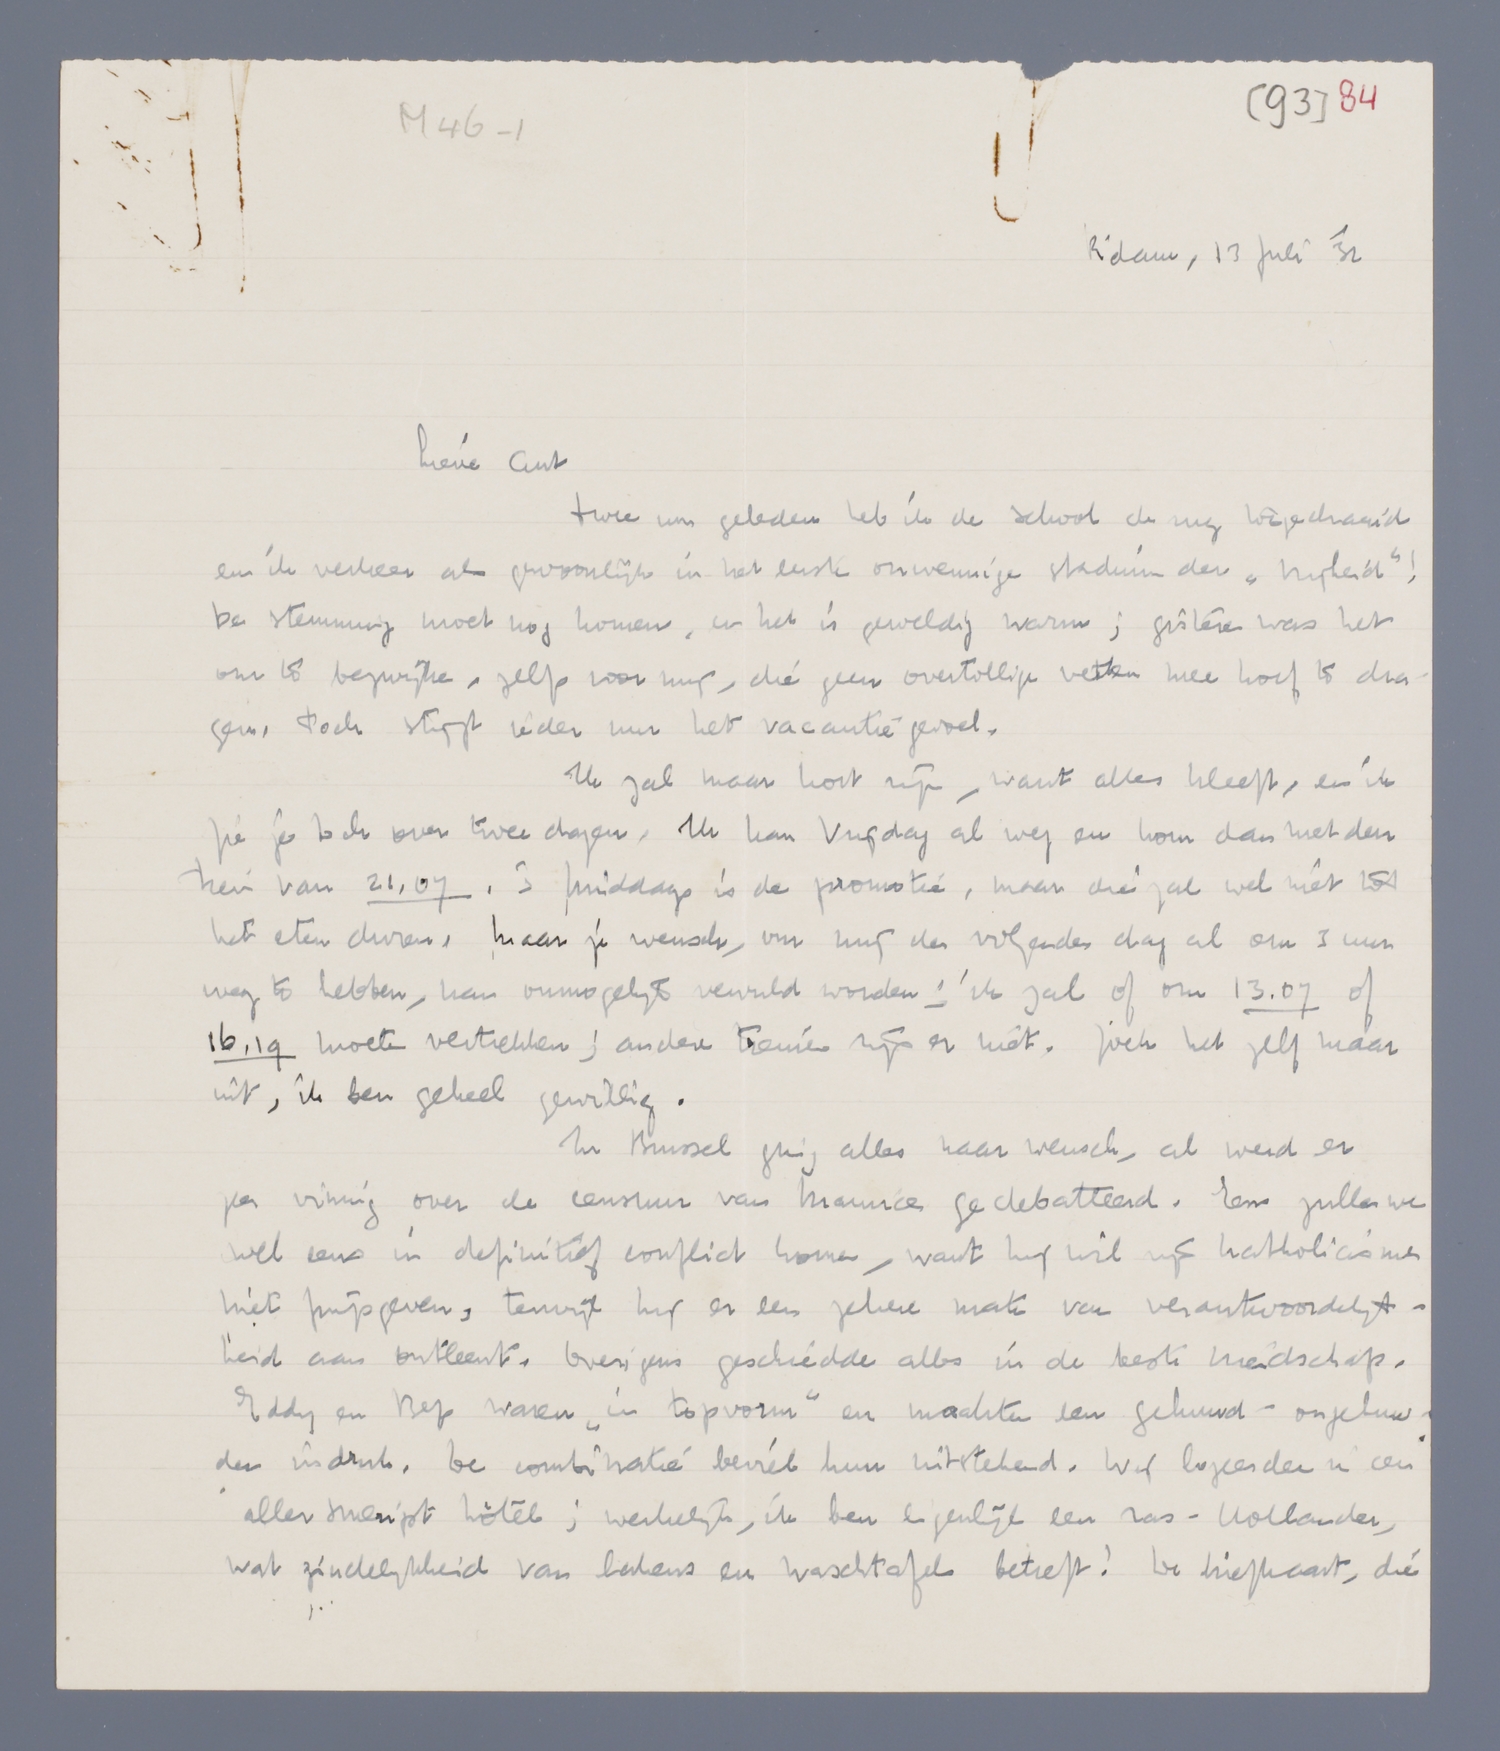 M46-1
[93] 84
R'dam, 13 Juli '32
Lieve Ant
Twee uur geleden heb ik de school de rug toegedraaid
en ik verkeer als gewoonlijk in het eerste onwennige stadium der „vrijheid”!
De stemming moet nog komen, en het is geweldig warm; gisteren was het
om te bezwijken, zelfs voor mij, die geen overtollige vetten mee hoef te dra-
gen. Toch stijgt ieder uur het vacantiegevoel.
Ik zal maar kort zijn, want alles kleeft, en ik
zie je toch over twee dagen. Ik kan Vrijdag al weg en kom dan met den
trein van 21.07. 's Middags is de promotie, maar die zal wel niet tot
het eten duren. Maar je wensch, om mij den volgenden dag al om 3 uur
weg te hebben, kan onmogelijk vervuld worden! ik zal of om 13.07 of
16.19 moeten vertrekken; andere treinen zijn er niet. Zoek het zelf maar
uit, ik ben geheel gewillig.
In Brussel ging alles naar wensch, al werd er
zeer vinnig over de censuur van Maurice gedebatteerd. Eens zullen we
wel eens in definitief conflict komen, want hij wil zijn katholicisme
niet prijsgeven, terwijl hij er een zekere mate van verantwoordelijk-
heid aan ontleent. Overigens geschiedde alles in de beste vriendschap.
Eddy en Bep waren „in topvorm” en maakten een gehuwd-ongehuw-
den indruk. De combinatie beviel hun uitstekend. Wij logeerden in een
allersmerigst hôtel; werkelijk, ik ben eigenlijk een ras-Hollander,
wat zindelijkheid van lakens en waschtafels betreft! De briefkaart, die